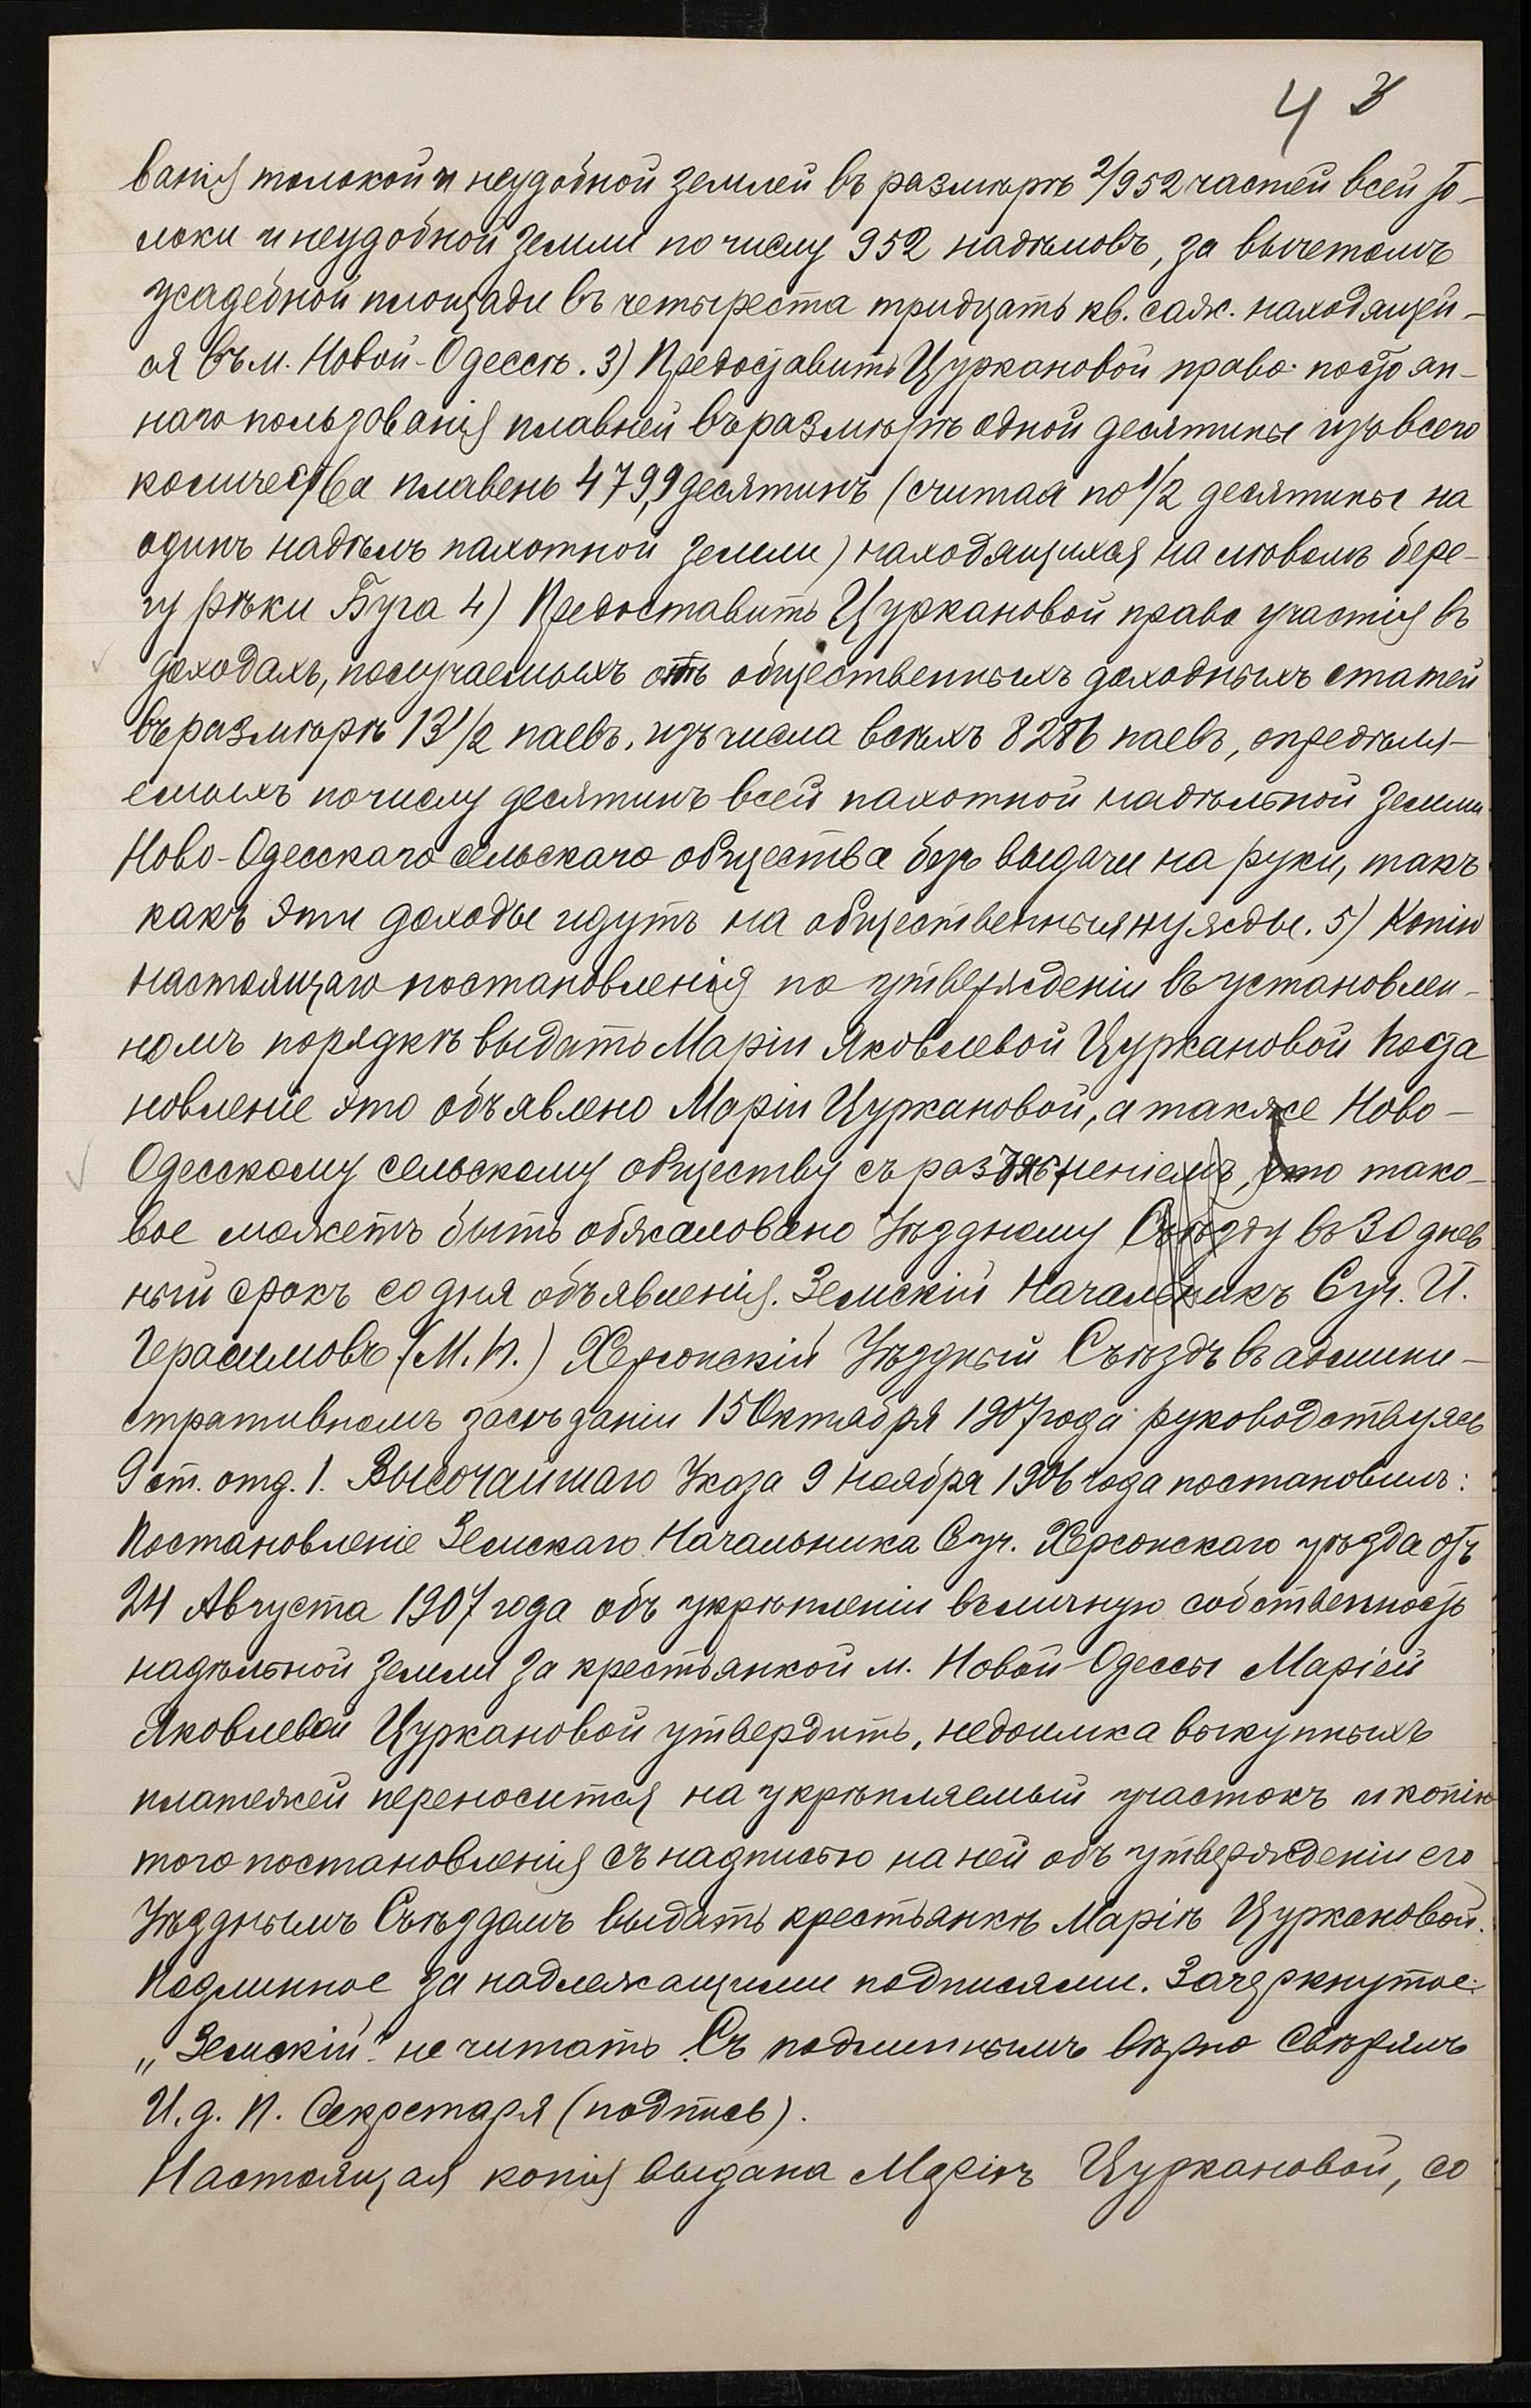 4 3
ванія толокой и неудобной землей въ размѣрѣ 2/952 частей всей то-
локи и неудобной земли по числу 952 надѣловъ, за вычетомъ
усадебной площади въ четыреста тридцать кв. саж. находящей-
ся въ м. Новой-Одессѣ. 3) Предоставить Цуркановой право постоян-
наго пользованія плавней въ размѣрѣ одной десятины изъ всего
количества плавень 479,9 десятинъ (считая по 1/2 десятины на
одинъ надѣлъ пахотной земли) находящихся на лѣвомъ бере-
гу рѣки Буга 4) Предоставить Цуркановой право участія въ
доходахъ, получаемыхъ отъ общественныхъ доходныхъ статей
въ размѣрѣ 13 1/2 паевъ, изъ числа всѣхъ 8286 паевъ, опредѣля-
емыхъ по числу десятинъ всей пахотной надѣльной земли
Ново-Одесскаго сельскаго общества безъ выдачи на руки, такъ
какъ эти доходы идутъ на общественныя нужды. 5) Копію
настоящаго постановленія по утвержденіи въ установлен-
номъ порядкѣ выдать Маріи Яковлевой Цуркановой Поста
новленіе это объявлено Маріи Цуркановой, а также Ново-
Одесскому сельскому обществу съ разъясненіемъ, что тако-
вое можетъ быть обжаловано Уѣздному Съѣзду въ 30 днев
ный срокъ со дня объявленія. Земскій Начальникъ 6 уч. И.
Герасимовъ (М. П.) Херсонскій Уѣздный Съѣздъ въ админи-
стративномъ засѣданіи 15 Октября 1907 года руководствуясь
9 ст. отд. 1. Высочайшаго Указа 9 Ноября 1906 года постановилъ:
Постановленіе Земскаго Начальника 6 уч. Херсонскаго уѣзда отъ
24 Августа 1907 года объ укрѣпленіи въ личную собственность
надѣльной земли за крестьянкой м. Новой-Одессы Маріей
Яковлевой Цуркановой утвердить, недоимка выкупныхъ
платежей переносится на укрѣпляемый участокъ и копію
того постановленія съ надписью на ней объ утвержденіи его
Уѣзднымъ Съѣздомъ выдать крестьянкѣ Маріѣ Цуркановой.
Подлинное за надлежащими подписями. Зачеркнутое:
„Земскій" не читать Съ подлиннымъ вѣрно Свѣрялъ
И. д. П. Секретаря (подпись).
Настоящая копія выдана Маріѣ Цуркановой, со